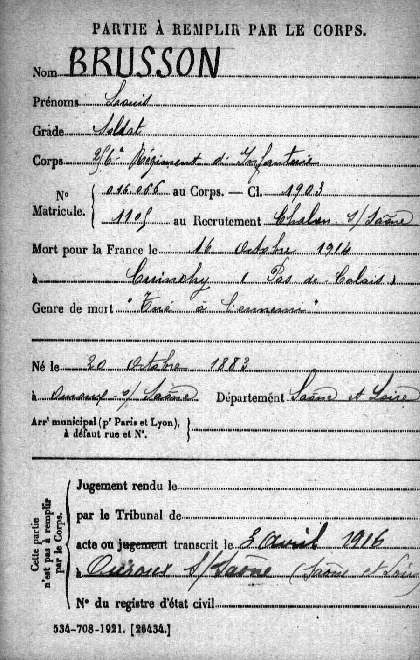 PARTIE À REMPLIR PAR LE CORPS.
Nom BRUSSON
Prénoms Louis
Grade Soldat
Corps 256e Régiment d'Infanterie
N° Matricule. { 016.066 au Corps. — Cl. 1903
1105 au Recrutement Chalon s/Saône
Mort pour la France le 16 Octobre 1914
à Cuinchy (Pas de Calais)
Genre de mort "Tué à l'ennemi"
Né le 20 Octobre 1883
à Ouroux s/Saône Département Saône et Loire
Arr' municipal (p' Paris et Lyon), à défaut rue et N°. }
Cette partie n'est pas à remplir par le Corps. {
Jugement rendu le
par le Tribunal de
acte ou jugement transcrit le 3 Avril 1916
à Ouroux S/Saône (Saône et Loire
N° du registre d'état civil
534-708-1921. [26434.]